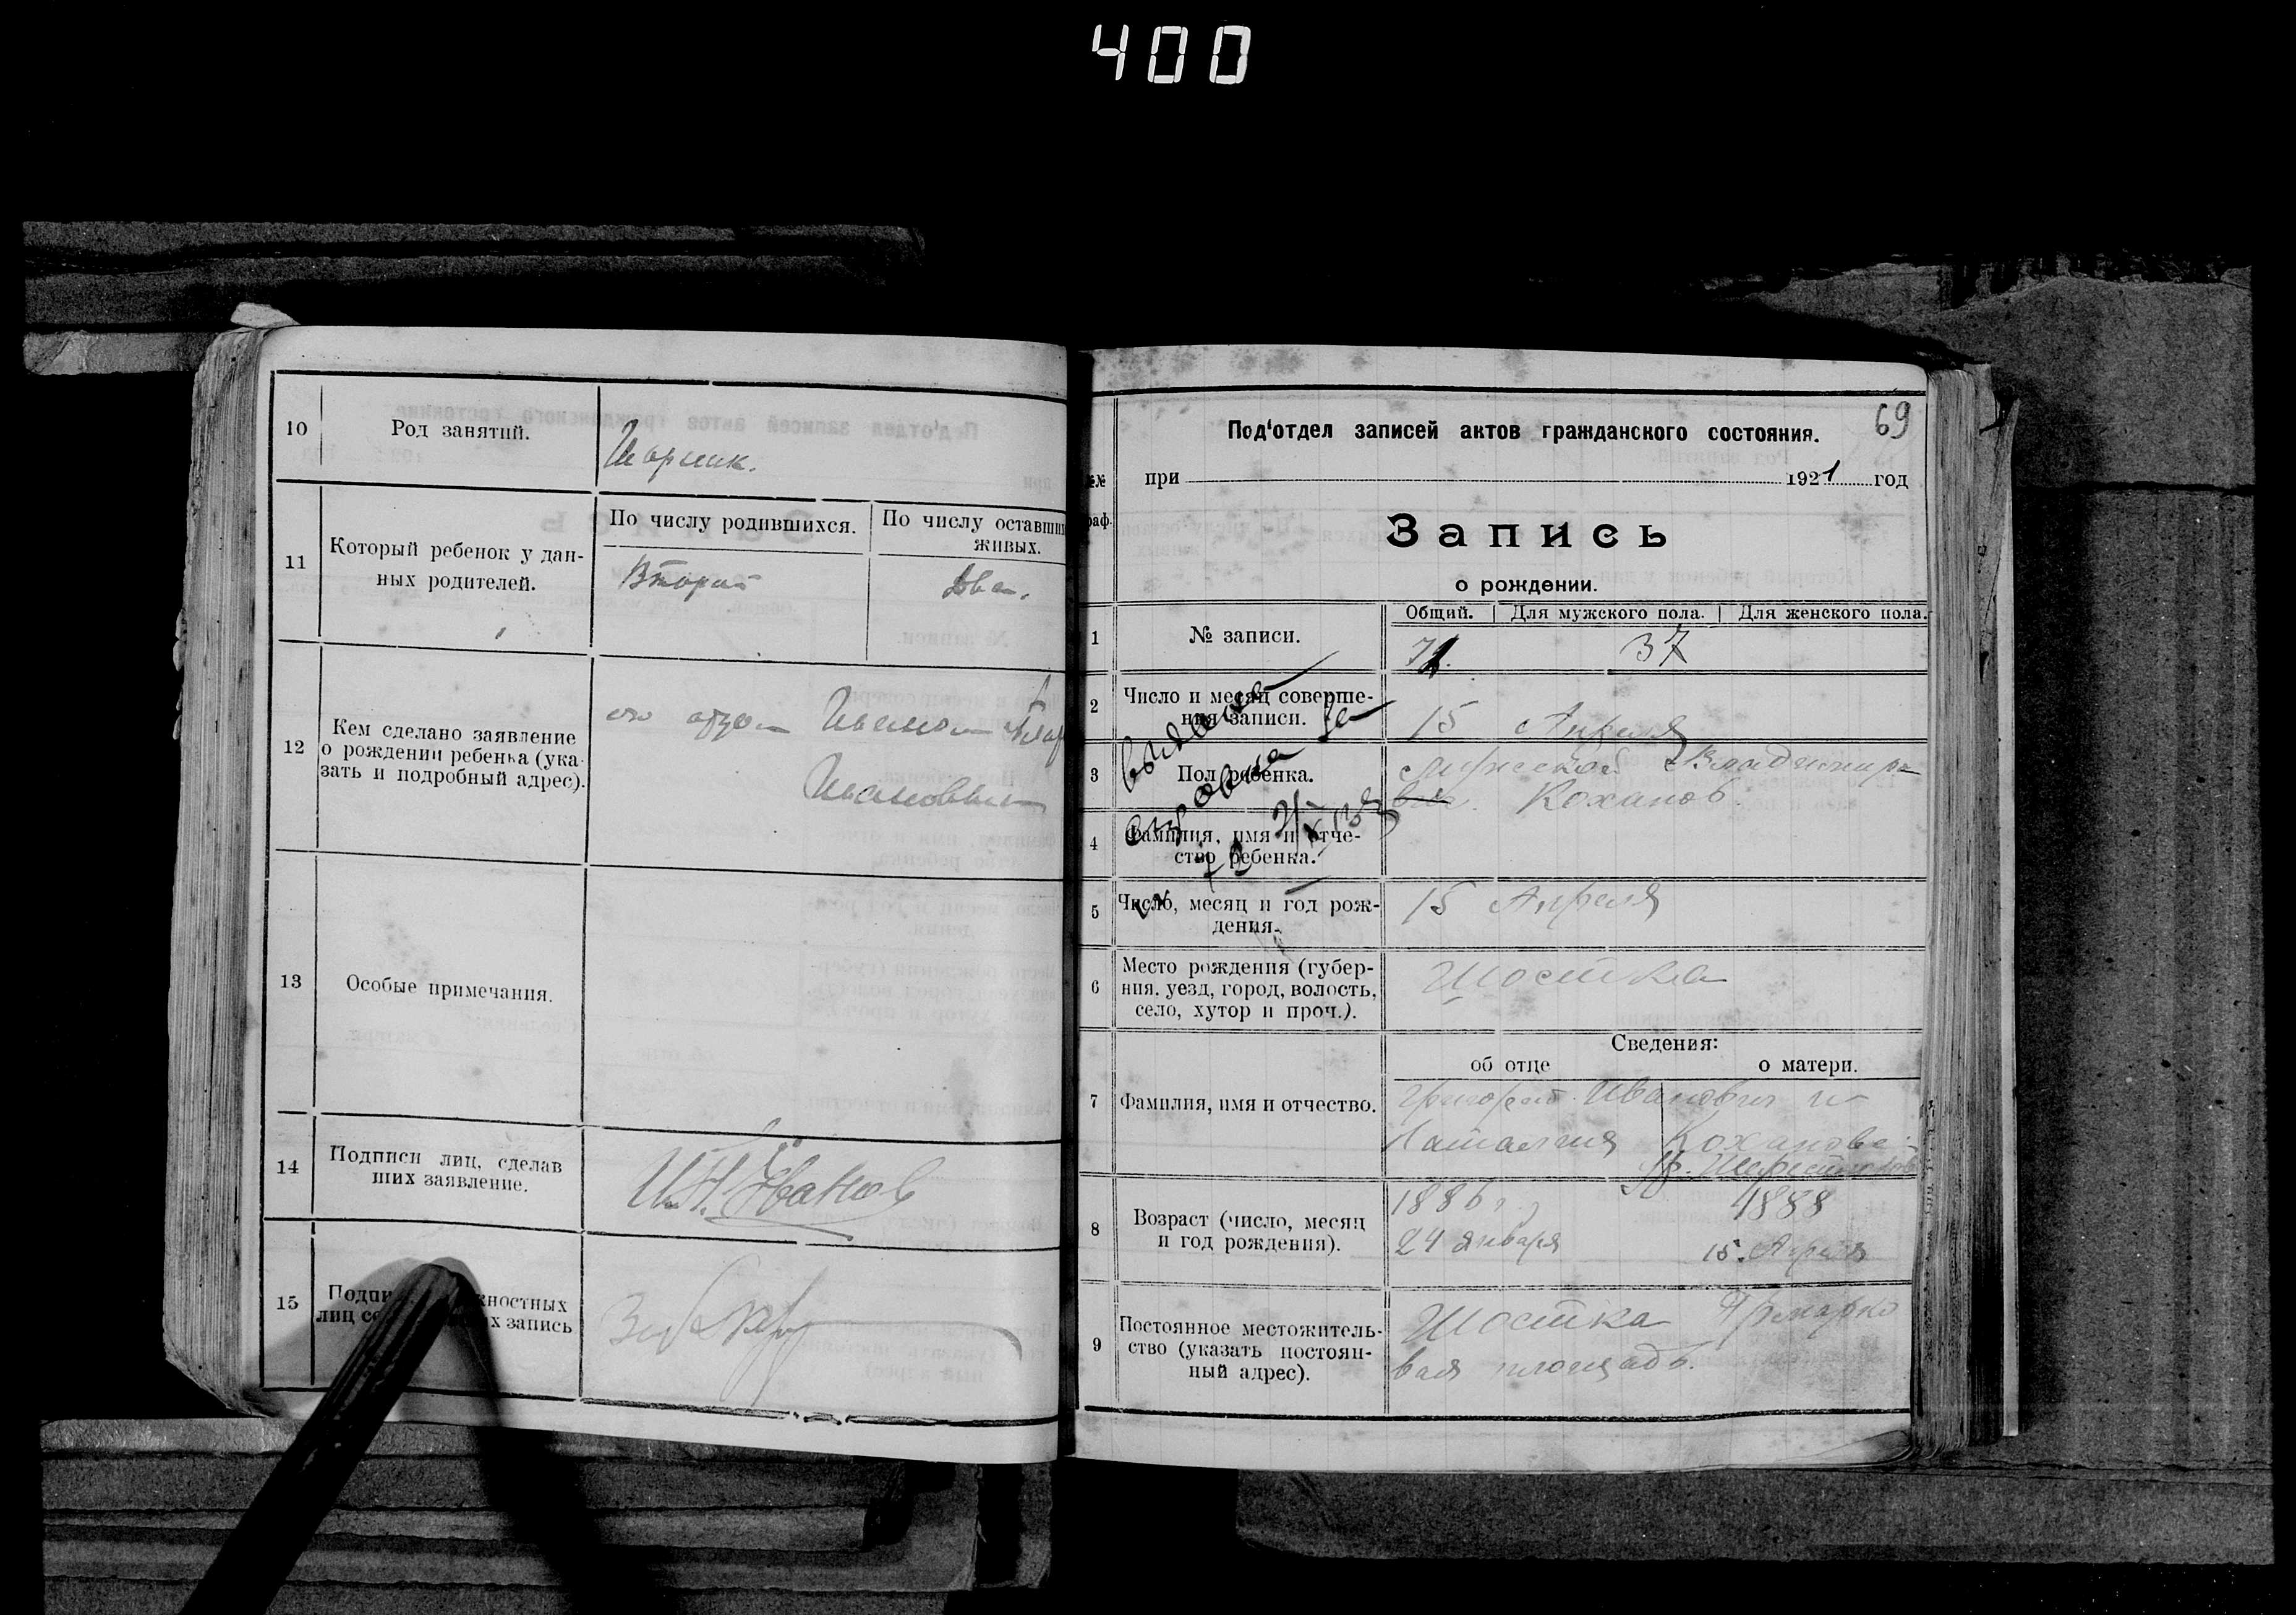 400
10
Род занятий.
11
Который ребенок у дан-
ных родителей.
По числу родившихся.
По числу оставших
живых.
Второй
Два.
12
Кем сделано заявление
о рождении ребенка (ука-
зать и подробный адрес).
отцом
Ивановым
13
Особые примечания.
14
Подписи лиц, сделав
ших заявление.
Иванов
15
Подпи ностных
лиц со х запись
69
Под‘отдел записей актов гражданского состояния.
при 1921 год
№№
раф.
Запись
о рождении.
Общий. Для мужского пола. Для женского пола.
1
№ записи.
71. 37
2
Число и месяц соверше-
ния записи.
15 Апреля
3
Пол ребенка.
мужской Владимир
Коханов.
4
Фамилия, имя и отче-
ство ребенка.
выдана
справка за
5
Число, месяц и год рож-
дения.
15 Апреля
6
Место рождения (губер-
ния, уезд, город, волость,
село, хутор и проч.).
Шостка
Сведения:
об отце
о матери.
7
Фамилия, имя и отчество.
Григорий Иванович и
Наталия Кохановы
8
Возраст (число, месяц
и год рождения).
1886 г.,
24 января
1888
15. Апреля
9
Постоянное местожитель-
ство (указать постоян-
ный адрес).
Шостка Ярмарко
вая площадь.